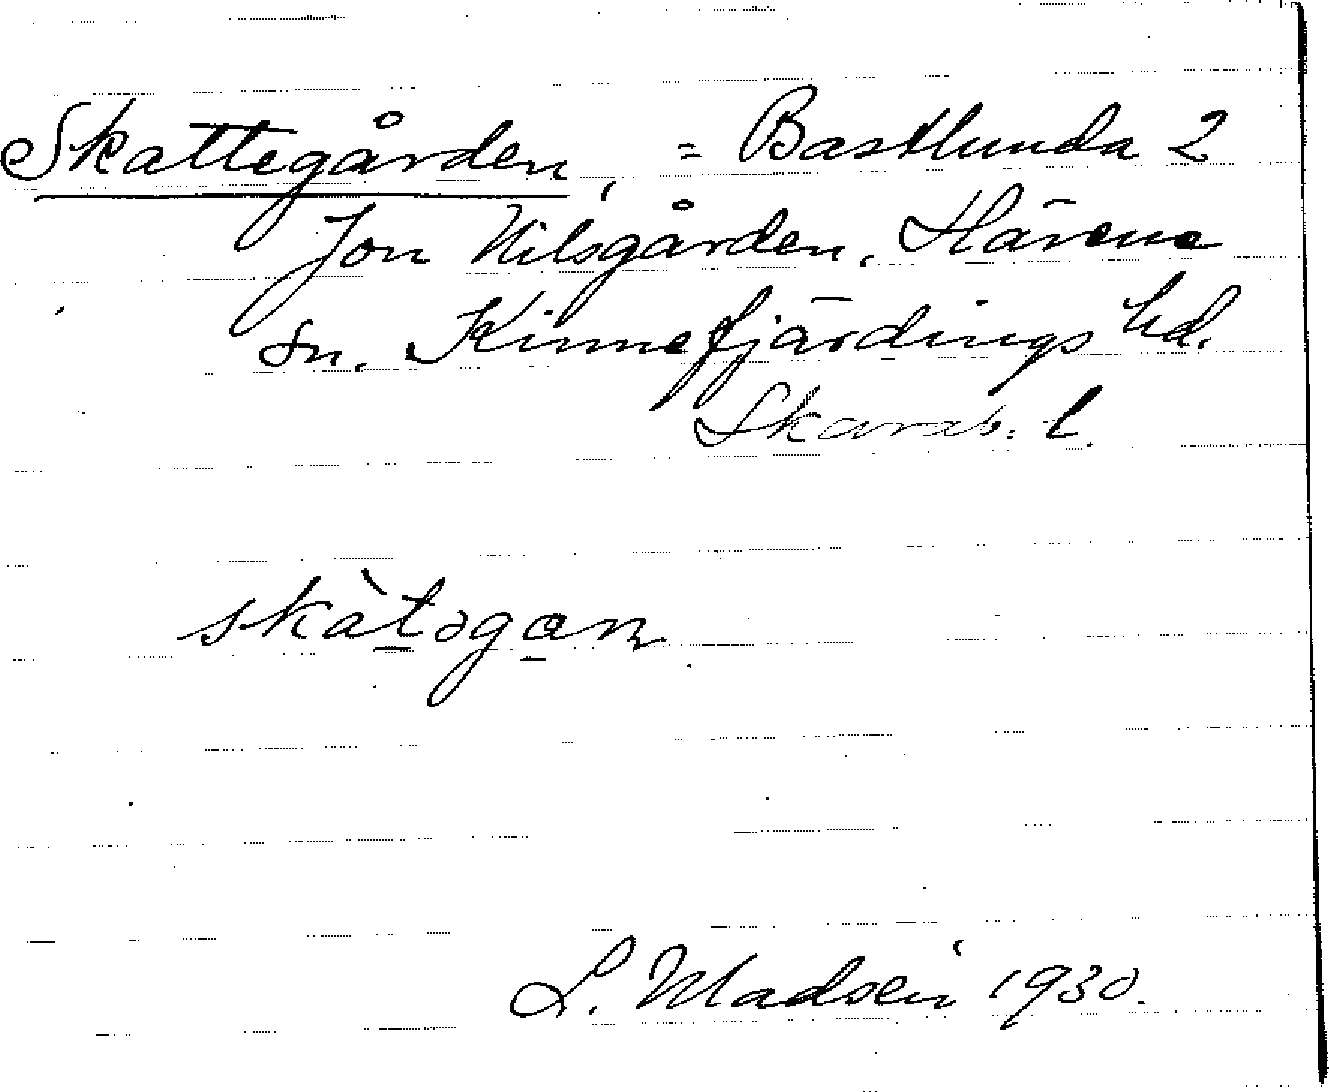 Skattegården, = Bastlunda 2
Jon Nilsgården, Härene
sn. Kinnefjärdings hd.
Skarab. l.
skàtəgan
L. Madsén 1930.